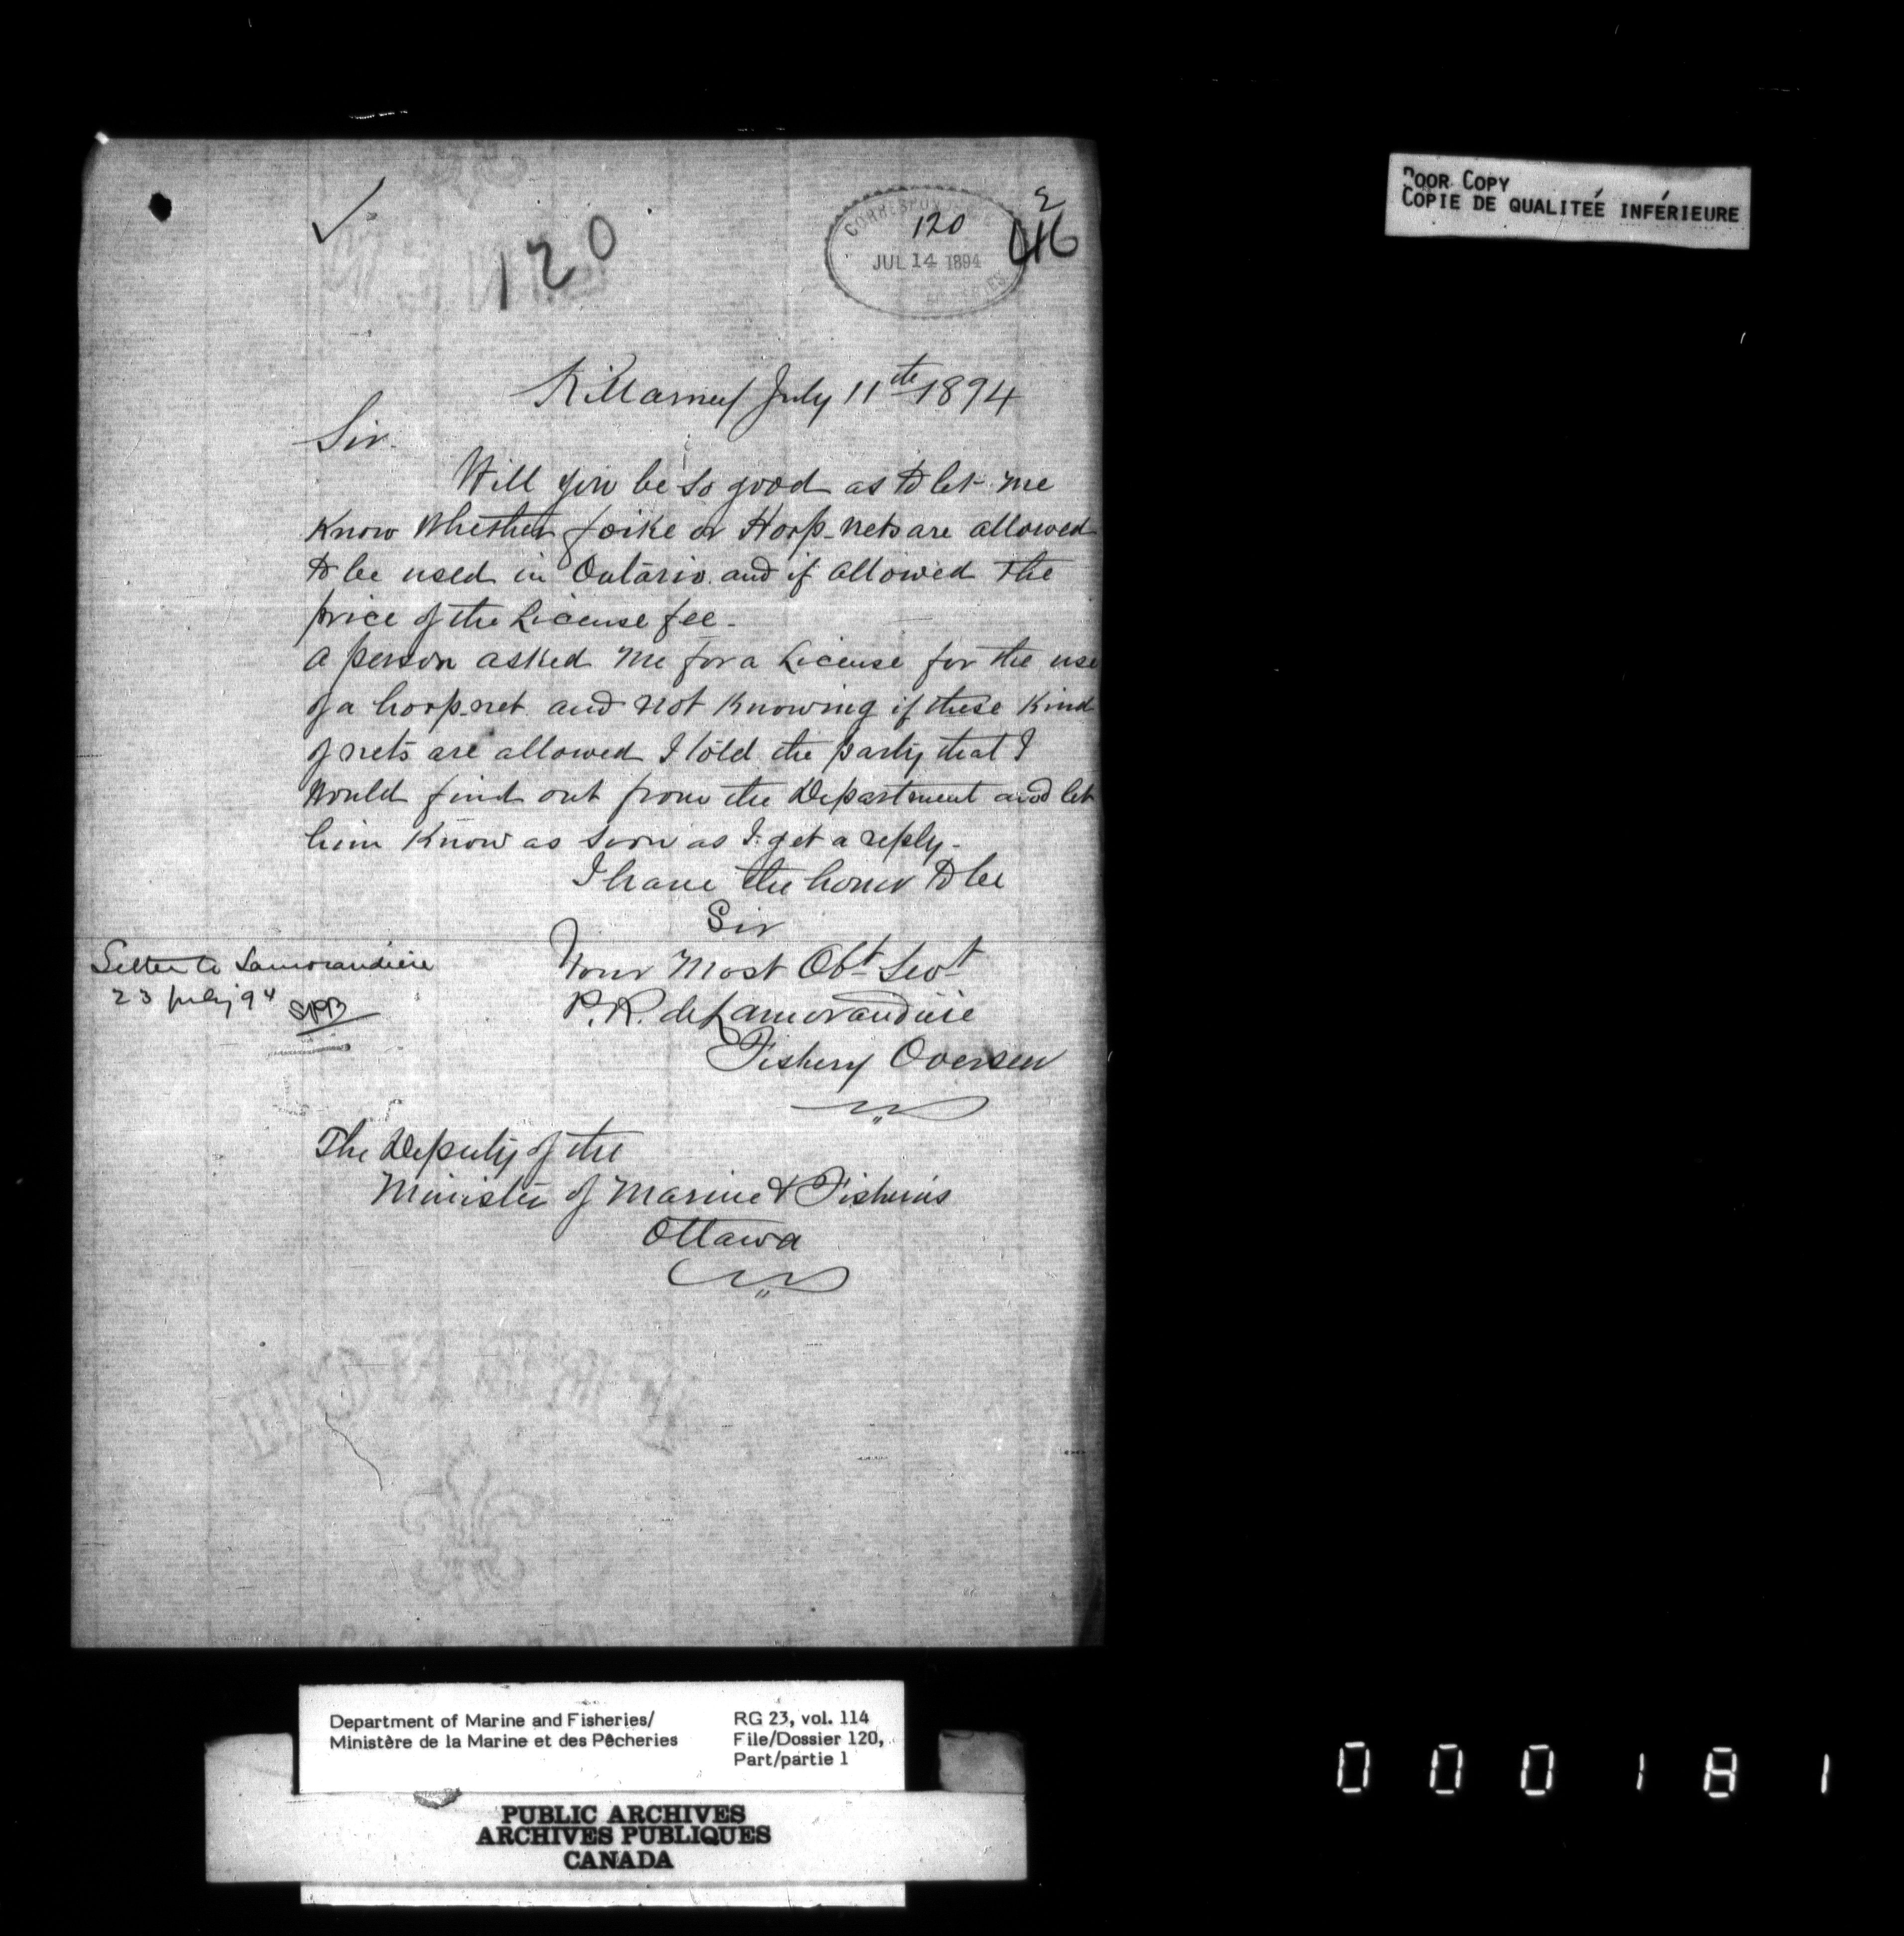 POOR COPY
COPIE DE QUALITEÉ INFÉRIEURE
120
120
JUL 14 1894
Killarney July 11th 1894
Sir.
Will you be so good as to let me
Know Whether foike or Hoop-nets are allowed
to be used in Ontario. and if allowed the
price of the License fee-
A person asked me for a License for the use
of a hoop-net. and not Knowing if these Kind
of nets are allowed I told the party that I
Would find out from the Department and let
him Know as soon as I get a reply-
I have the honor to be
Sir
Your Most Obt Servt
P.R. de Lamorandiere
Fishery Overseer
Letter to Lamorandiere
23 July 94
The Deputy of the
Minister of Marine & Fisheries
Ottawa
Department of Marine and Fisheries/
Ministère de la Marine et des Pêcheries
RG 23, vol. 114
File/Dossier 120,
Part/partie 1
PUBLIC ARCHIVES
ARCHIVES PUBLIQUES
CANADA
000181